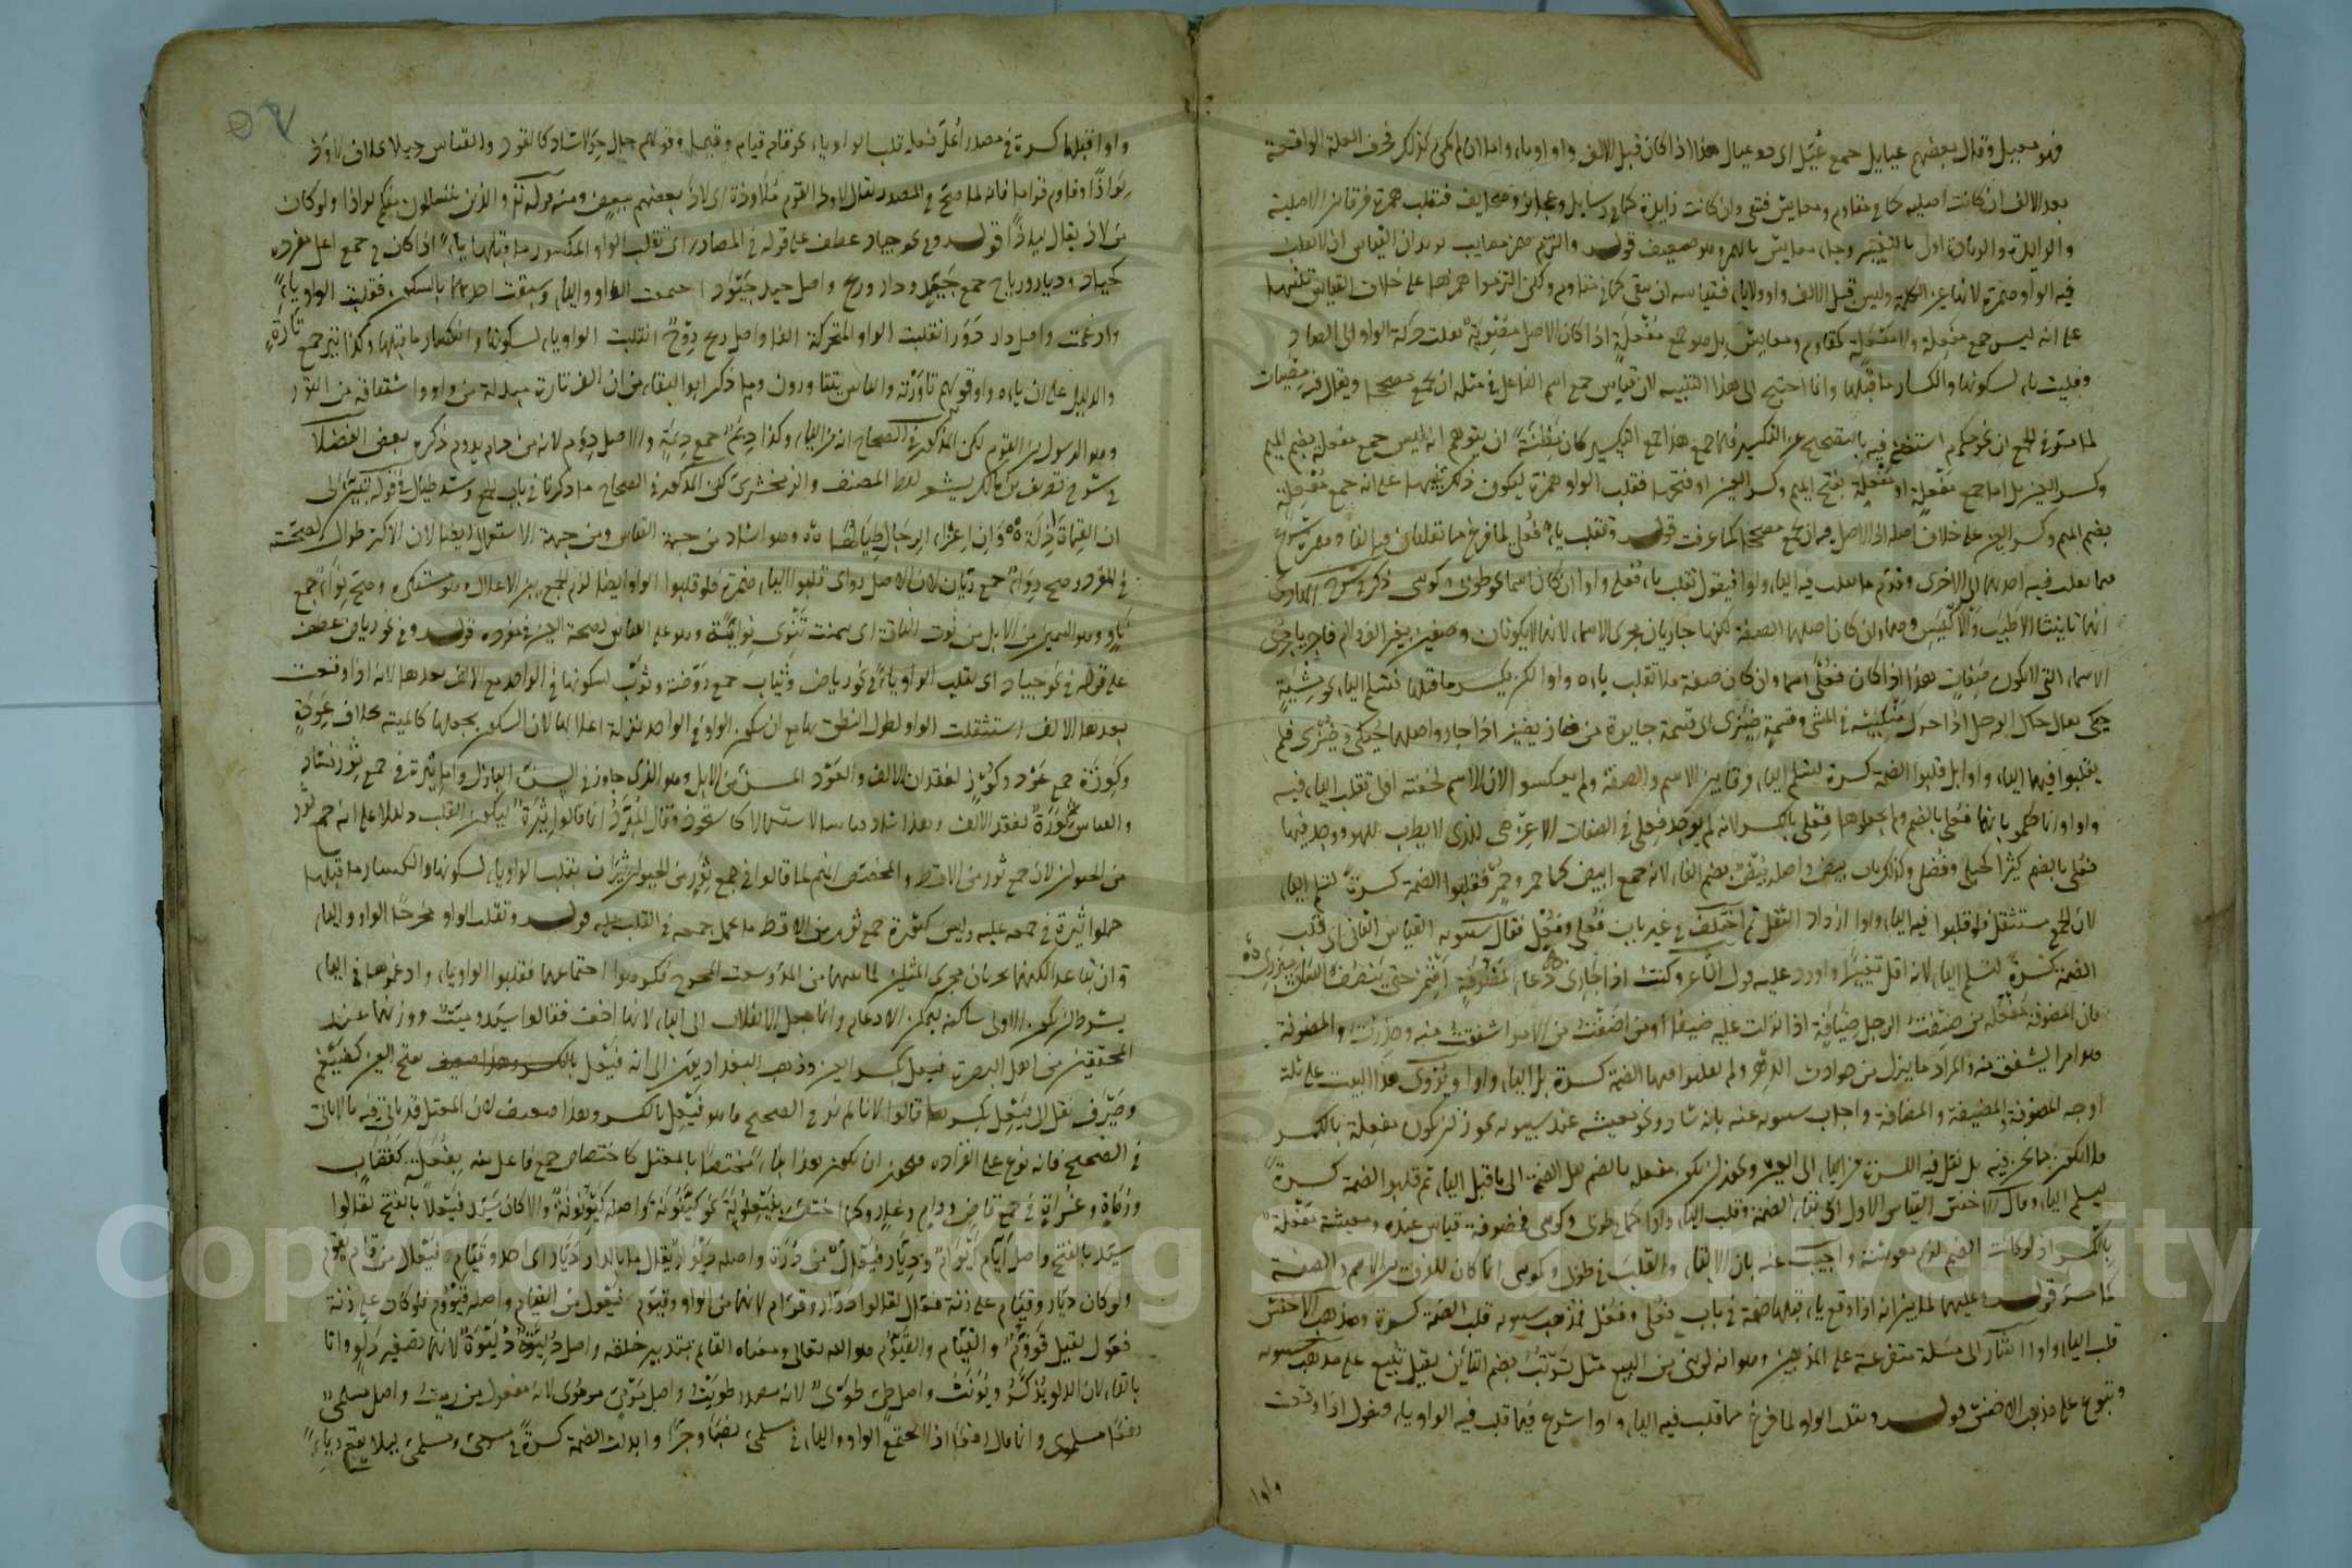 فهو معيل وقال بعضهم عيايل جمع عيّل اى ذو عيال هذا اذا كان قبل الالف واو او ياء واما ان لم يكن كذلك فحرف العلة الواقعة
بعد الالف ان كانت اصلية كما فى مقاوم ومعايش فتبقى وان كانت زايدة كما فى رسايل وعجايز وصحايف فتقلب همزة فرقا بين الاصلية
والزايدة والزيادة اولى بالتغيير وجاء معايش بالهمز وهو ضعيف قوله والتزم همز مصايب يريد ان القياس ان لا تقلب
فيه الواو همزة لانها عين الكلمة وليس قبل الالف واو ولا ياء فقياسه ان يبقى كما فى مقاوم ولكن التزموا همزها على خلاف القياس تنبيها
على انه ليس جمع مفعلة ولا مفعلة كمقاوم ومعايش بل هو جمع مفعلة اذا كان الاصل مصوبة نقلت حركة الواو الى الصاد
وقلبت ياء لسكونها وانكسار ما قبلها وانما احتيج الى هذا التنبيه لان قياس جمع اسم الفاعل فى مثله ان يجمع مصححا ويقال فيه مصيبات
لما ستعرف فى الجمع ان نحو مكرم استغنى فيه بالتصحيح عن التكسير فلما جمع هذا جمع التكسير كان مظنة ان يتوهم انه ليس جمع مفعلة بضم الميم
وكسر العين بل اما جمع مفعلة او مفعلة بفتح الميم وكسر العين او فتحها فقلب الواو همزة ليكون ذلك تنبيها على انه جمع مفعلة
بضم الميم وكسر العين على خلاف اصله اذ الاصل فيه ان يجمع مصححا كما عرفت قوله وتقلب ياء فعلى لما فرغ مما تقلبان فيه الفا وهمزة شرع
فيما تقلب فيه احديهما الى الاخرى وقدم ما تقلب فيه الياء واوا فيقول تقلب ياء فعلى واوا ان كان اسما نحو طوبى وكوسى ذكر
انهما تانيثا الاطيب والاكيس وهما وان كان اصلهما الصفة لكنهما جاريان مجرى الاسماء لانهما لا يكونان وصفين بغير الف ولام فاجريا مجرى
الاسماء التى لا تكون صفات هذا اذا كان فعلى اسما وان كان صفة فلا تقلب ياءه واوا لكن يكسر ما قبلها فتسلم الياء نحو مشية
حيكى يقال حاك الرجل اذا حرك منكبيه فى المشى وقسمة ضيزى اى قسمة جايرة من ضاز يضيز اذا جار واصلهما حيكى وضيزى فلم
يقلبوا فيهما الياء واوا بل قلبوا الضمة كسرة لتسلم الياء فرقا بين الاسم والصفة ولم يعكسوا لان الاسم لخفته اولى بقلب الياء فيه
واوا وانما حكموا بانها فعلى بالضم ولم يجعلوها فعلى بالكسر لانه لم يوجد فعلى فى الصفات الا عزهى للذى لا يطرب للهو ووجد فيها
فعلى بالضم كثيرا كحبلى وفضلى وكذلك باب بيض واصله بيض بضم الفاء لانه جمع ابيض كما حمر وحمر فقلبوا الضمة كسرة لتسلم الياء
لان الجمع مستثقل فلو قلبوا فيه الياء واوا ازداد الثقل ثم اختلف فى غير باب فعلى وفعل فقال سيبويه القياس الثانى اى قلب
الضمة كسرة لتسلم الياء لانه اقل تغييرا واورد عليه قول الشاعر وكنت اذا جارى دعا لمضوفة اشمر حتى ينصف الساق ميزرى
فان المضوفة مفعلة من ضفت الرجل ضيافة اذا نزلت عليه ضيفا او من اضفت من الامر اشفقت منه وحذرت والمضوفة
وهو امر يشفق منه والمراد ما ينزل من حوادث الدهر ولم يقلبوا فيها الضمة كسرة بل الياء واوا ويروى هذا البيت على ثلثة
اوجه المضوفة والمضيفة والمضافة واجاب سيبويه عنه بانه شاذ ونحو معيشة عند سيبويه يجوز ان يكون مفعلة بالكسر
فلا يكون مما نحن فيه بل نقل فيه الكسرة من الياء الى العين ويجوز ان يكون مفعلة بالضم نقل الضمة الى ما قبل الياء ثم قلبوا الضمة كسرة
ليسلم الياء وقال الاخفش القياس الاول اى بقاء الضمة وقلب الياء واوا كما فى طوبى وكوسى فمضوفة قياس عنده ومعيشة مفعلة
بالكسر اذ لو كانت بالضم لزم معوشة واجيب عنه بان الابقاء والقلب فى طوبى وكوسى انما كان للفرق بين الاسم والصفة
كما مر قوله وعليهما لما بين انه اذا وقع ياء قبلها ضمة فى باب فعلى وفعل فمذهب سيبويه قلب الضمة كسرة ومذهب الاخفش
قلب الياء واوا اشار الى مسئلة متفرعة على المذهبين وهو انه لو بنى من البيع مثل ترتب بضم التائين يقيل تبيع على مذهب سيبويه
وتبوع على مذهب الاخفش قوله وتقلب الواو لما فرغ مما قلب فيه الياء واوا شرع فيما قلب فيه الواو ياء فيقول اذا وقعت
واوا
واوا قبلها كسرة فى مصدر اعل فعله تقلب الواو ياء نحو قام قياما وقيما وقولهم حال حولا شاذ كالقود والقياس حيلا بخلاف لاوذ
لواذا وقاوم قواما فانه لما صح فى المصدر يقال لاوذ القوم ملاوذة اى لاذ بعضهم ببعض ومنه قوله تع والذين يتسللون منكم لواذا ولو كان
من لاذ يقال لياذا قوله وفى نحو جياد عطف على قوله فى المصادر اى تقلب الواو المكسور ما قبلها ياء اذا كان فى جمع اعل مفرده
كجياد وديار ورياح جمع جيد ودار وريح واصل جيد جيود اجتمعت الواو والياء وسبقت احديهما بالسكون فقلبت الواو ياء
وادغمت واصل دار دور انقلبت الواو المتحركة الفا واصل ريح روح انقلبت الواو ياء لسكونها وانكسار ما قبلها وكذا تير جمع تارة
والدليل على ان ياءه واو قولهم تاورته والناس يتتاورون وبما ذكر ابو البقاء من ان الف تارة مبدلة من واو واشتقاقه من التور
وهو الرسول بين القوم لكن المذكور فى الصحاح انه من الياء وكذا ديم جمع ديمة والاصل دوم لانه من دام يدوم ذكره بعض الفضلا
فى شرح تصريف بن مالك لفظ المصنف والزمخشرى لكن المذكور فى الصحاح ما ذكرنا فى باب الجمع وشذ طيال فى قوله تبين لى
ان القماءة ذلة وان اعزاء الرجال طيالها شاذ وهو شاذ من جهة القياس ومن جهة الاستعمال ايضا لان الاكثر طوال لصحته
فى المفرد وصح رواء جمع ريان لان الاصل رواى قلبوا الياء همزة فلو قلبوا الواو ايضا لزم الجمع بين الاعلالين وهو مستكره وصح نواء جمع
ناو وهو السمين من الابل من نوت الناقة اى سمنت تنوى نواية وهو على القياس لصحة العين فى مفرده قوله وفى نحو رياض عطف
على قوله فى نحو جياد اى تقلب الواو ياء فى نحو رياض وثياب جمع روضة وثوب لسكونها فى الواحد مع الالف بعدها لانه اذا وقعت
بعدها الالف استثقلت الواو لطول النطق بها مع ان سكون الواو فى الواحد بمنزلة اعلالها لان السكون يجعلها كالميتة بخلاف عودة
وكوزة جمع عود وكوز لفقدان الالف والعود المسن من الابل وهو الذى جاوز فى السن البازل واما ثيرة فى جمع ثور فشاذ
والقياس ثورة لفقد الالف وهذا شاذ قياسا لا استعمالا كاستحوذ وقال المبرد انما قالوا ثيرة ليكون القلب دليلا على انه جمع ثور
من الحيوان لان جمع ثور من الاقط والمختص انهم لما قالوا فى جمع ثور من الحيوان ثيران بقلب الواو ياء لسكونها وانكسار ما قبلها
حملوا ثيرة فى جمعه عليه وليس كثورة جمع ثور من الاقط ما يحمل جمعه فى القلب عليه قوله وتقلب الواو مخرجا الواو والياء
وان تباعدا لكنهما يجريان مجرى المثلين لما بينهما من المد وسعة المخرج فكرهوا اجتماعهما فقلبوا الواو ياء وادغموها فى الياء
بشرط ان يكون الاولى ساكنة ليمكن الادغام وانما جعل الانقلاب الى الياء لانها اخف فقالوا سيد وميت ووزنهما عند
المحققين من اهل البصرة فيعل بكسر العين وذهب البغداديون الى انه فيعل بفتح العين كضيغم
وصيرف نقل الى فيعل بكسرها قالوا لانا لم نر فى الصحيح ما هو فيعل بالكسر وهذا ضعيف لان المعتل قد ياتى فيه ما لا ياتى
فى الصحيح فانه نوع على انفراده فيجوز ان يكون هذا البناء مختصا بالمعتل كاختصاص جمع فاعل منه بفعلة كقضاة
ورماة وغزاة فى جمع قاض ورام وغاز وكما اختص بفيعلولة نحو كينونة واصله كيونونة والا كان سيد فيعلا بالفتح لقالوا
سيد بالفتح واصل ايام ايوام وديار فيعال من دور واصله ديوار يقال ما بالدار ديار اى احد وقيام فيعال من قام يقوم
ولو كان ديار وقيام على زنة فعال لقالوا دوار وقوام لانهما من الواو وقيوم فيعول من القيام واصله قيووم فلو كان على زنة
فعول لقيل قووم والقيام والقيوم هو الله تعالى ومعناه القايم بتدبير خلقه واصل دلية دليوة لانها تصغير دلو وانما
بالتاء لان الدلو يذكر ويؤنث واصل طى طوى لانه مصدر طويت واصل مرمى مرموى لانه مفعول من رميت واصل مسلمى
رفعا مسلموى وانما قال رفعا اذ لا يجتمع الواو والياء فى مسلمى نصبا وجرا وابدلت الضمة كسرة فى مرمى ومسلمى ليلا يقع ياء
Copyright © King Saud University